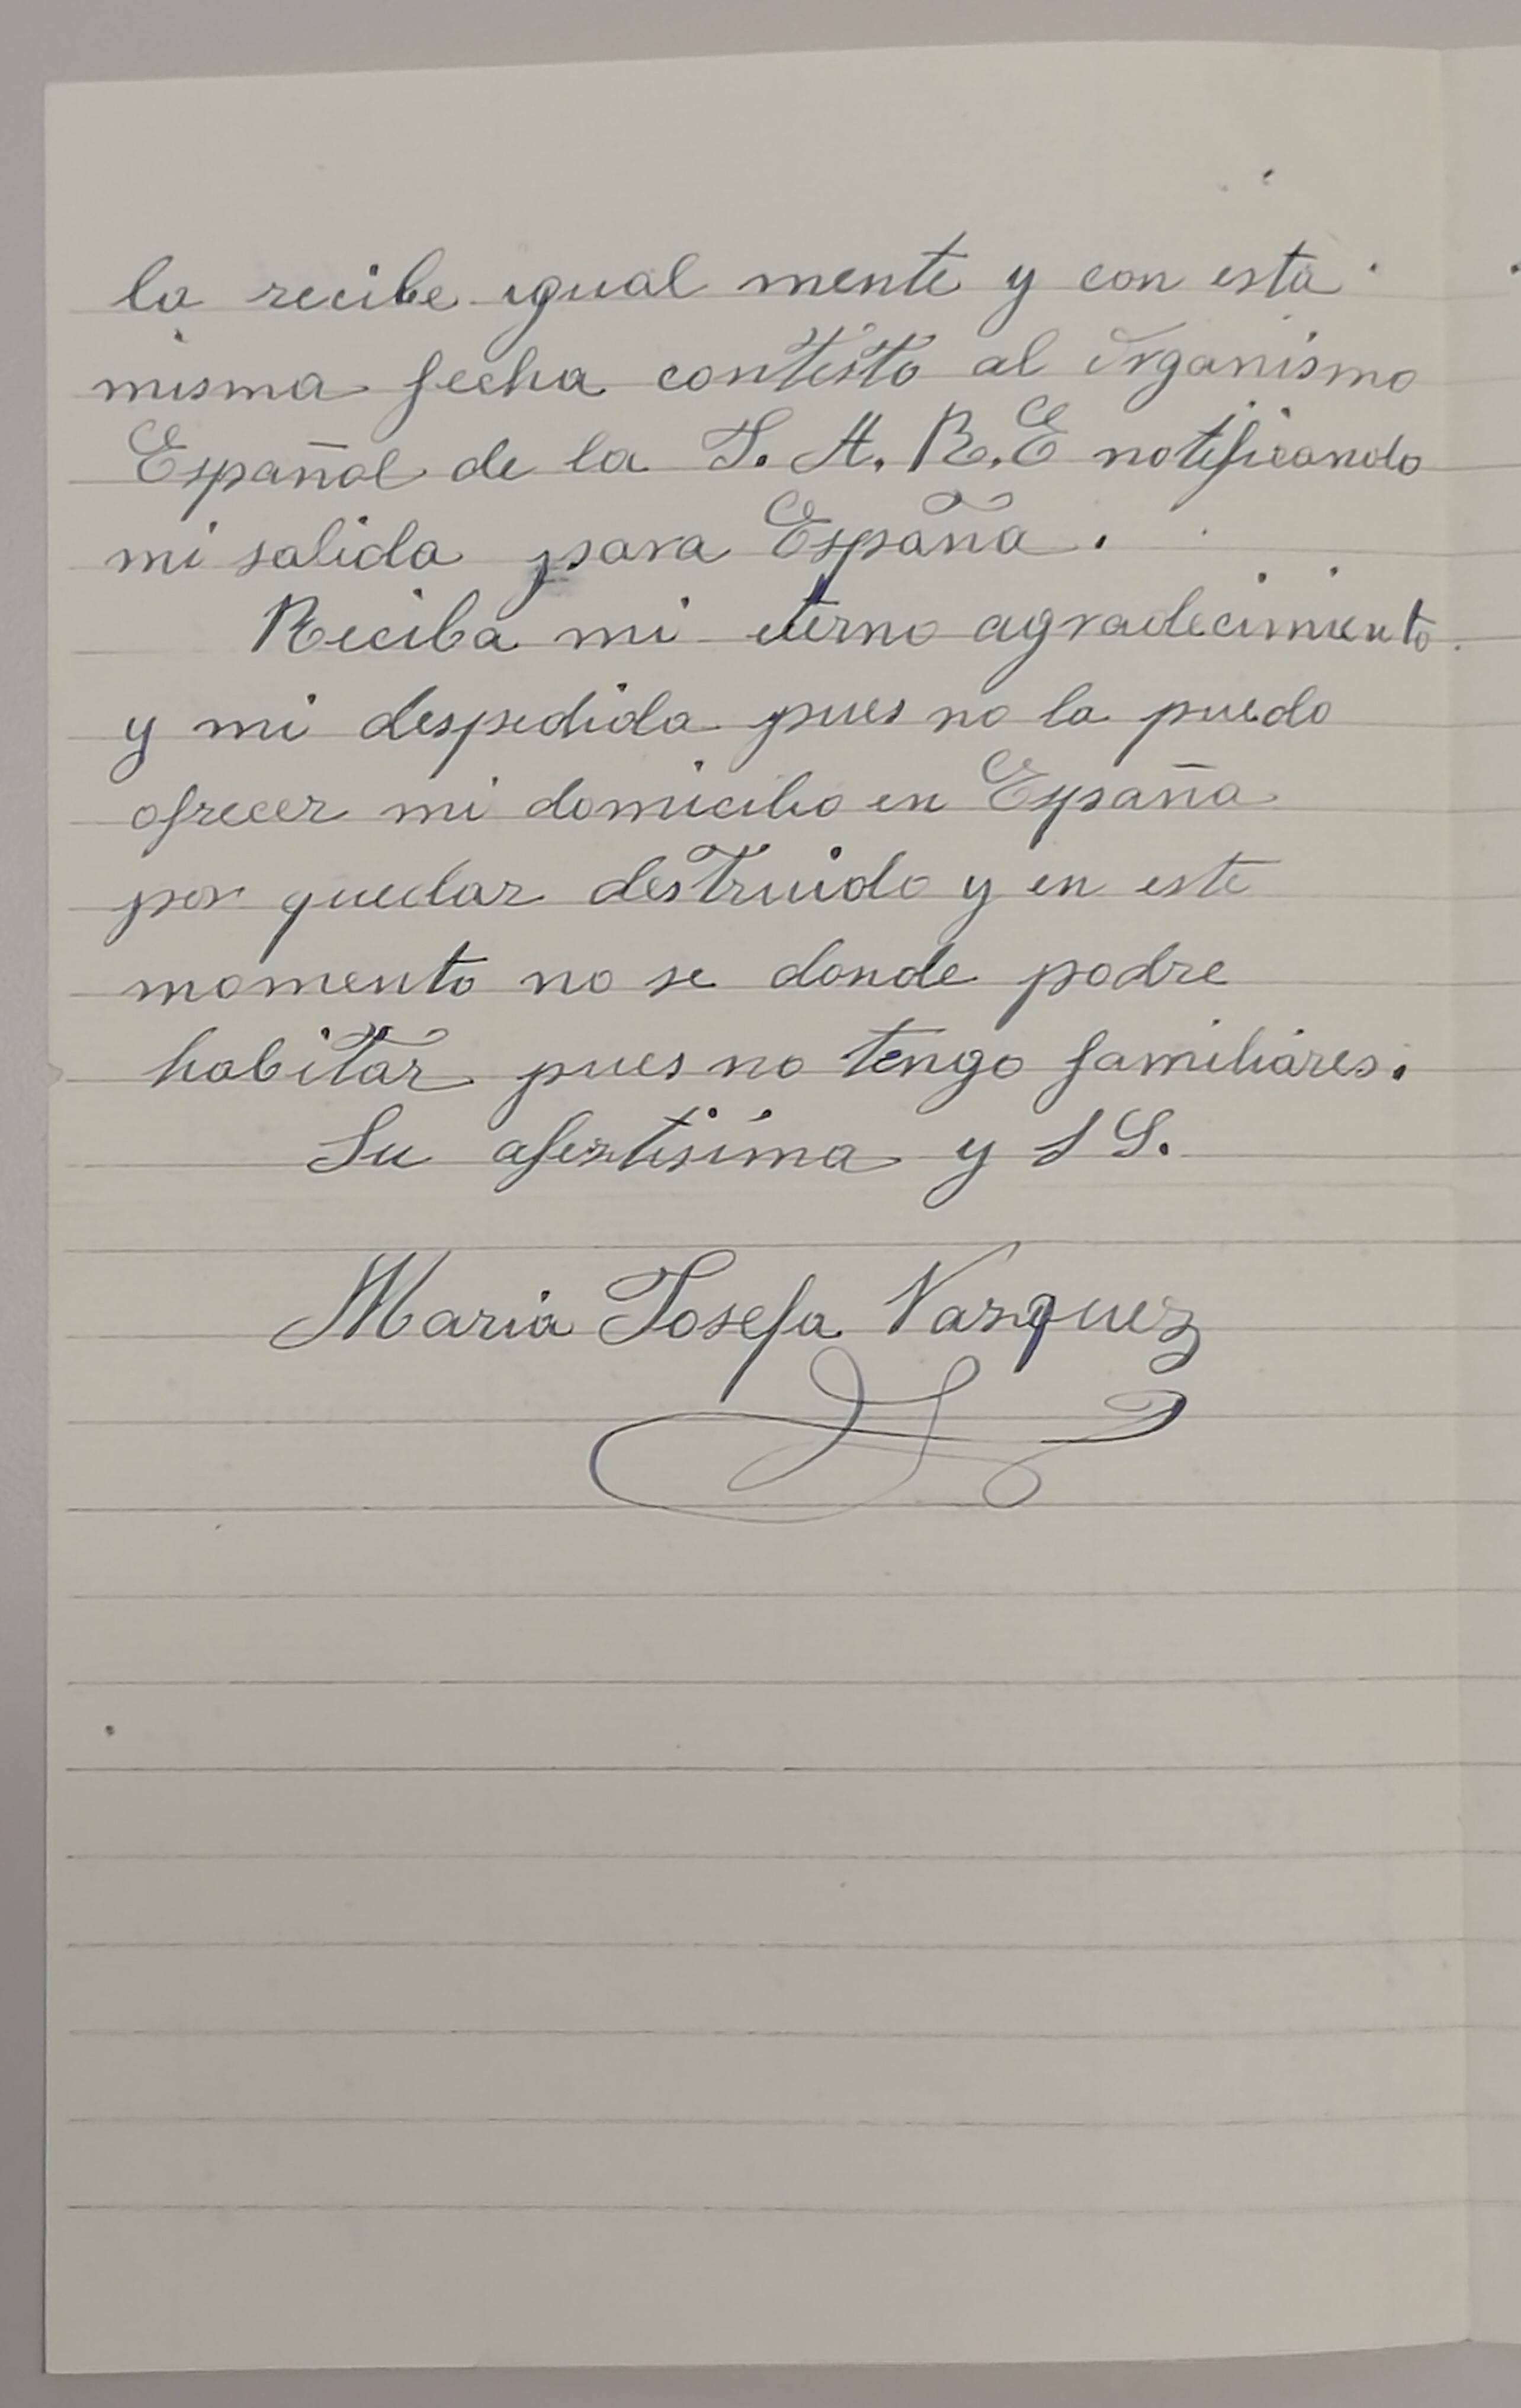 la recibe igual mente y con esta
misma fecha contesto al Organismo
Español de la J. A. R. E notificando
mi salida para España.
Reciba mi eterno agradecimiento
y mi despedida pues no la puedo
ofrecer mi domicilio en España
por quedar destruido y en este
momento no se donde podre
habitar pues no tengo familiares.
Su afectisima y S S.
Maria Josefa Vazquez